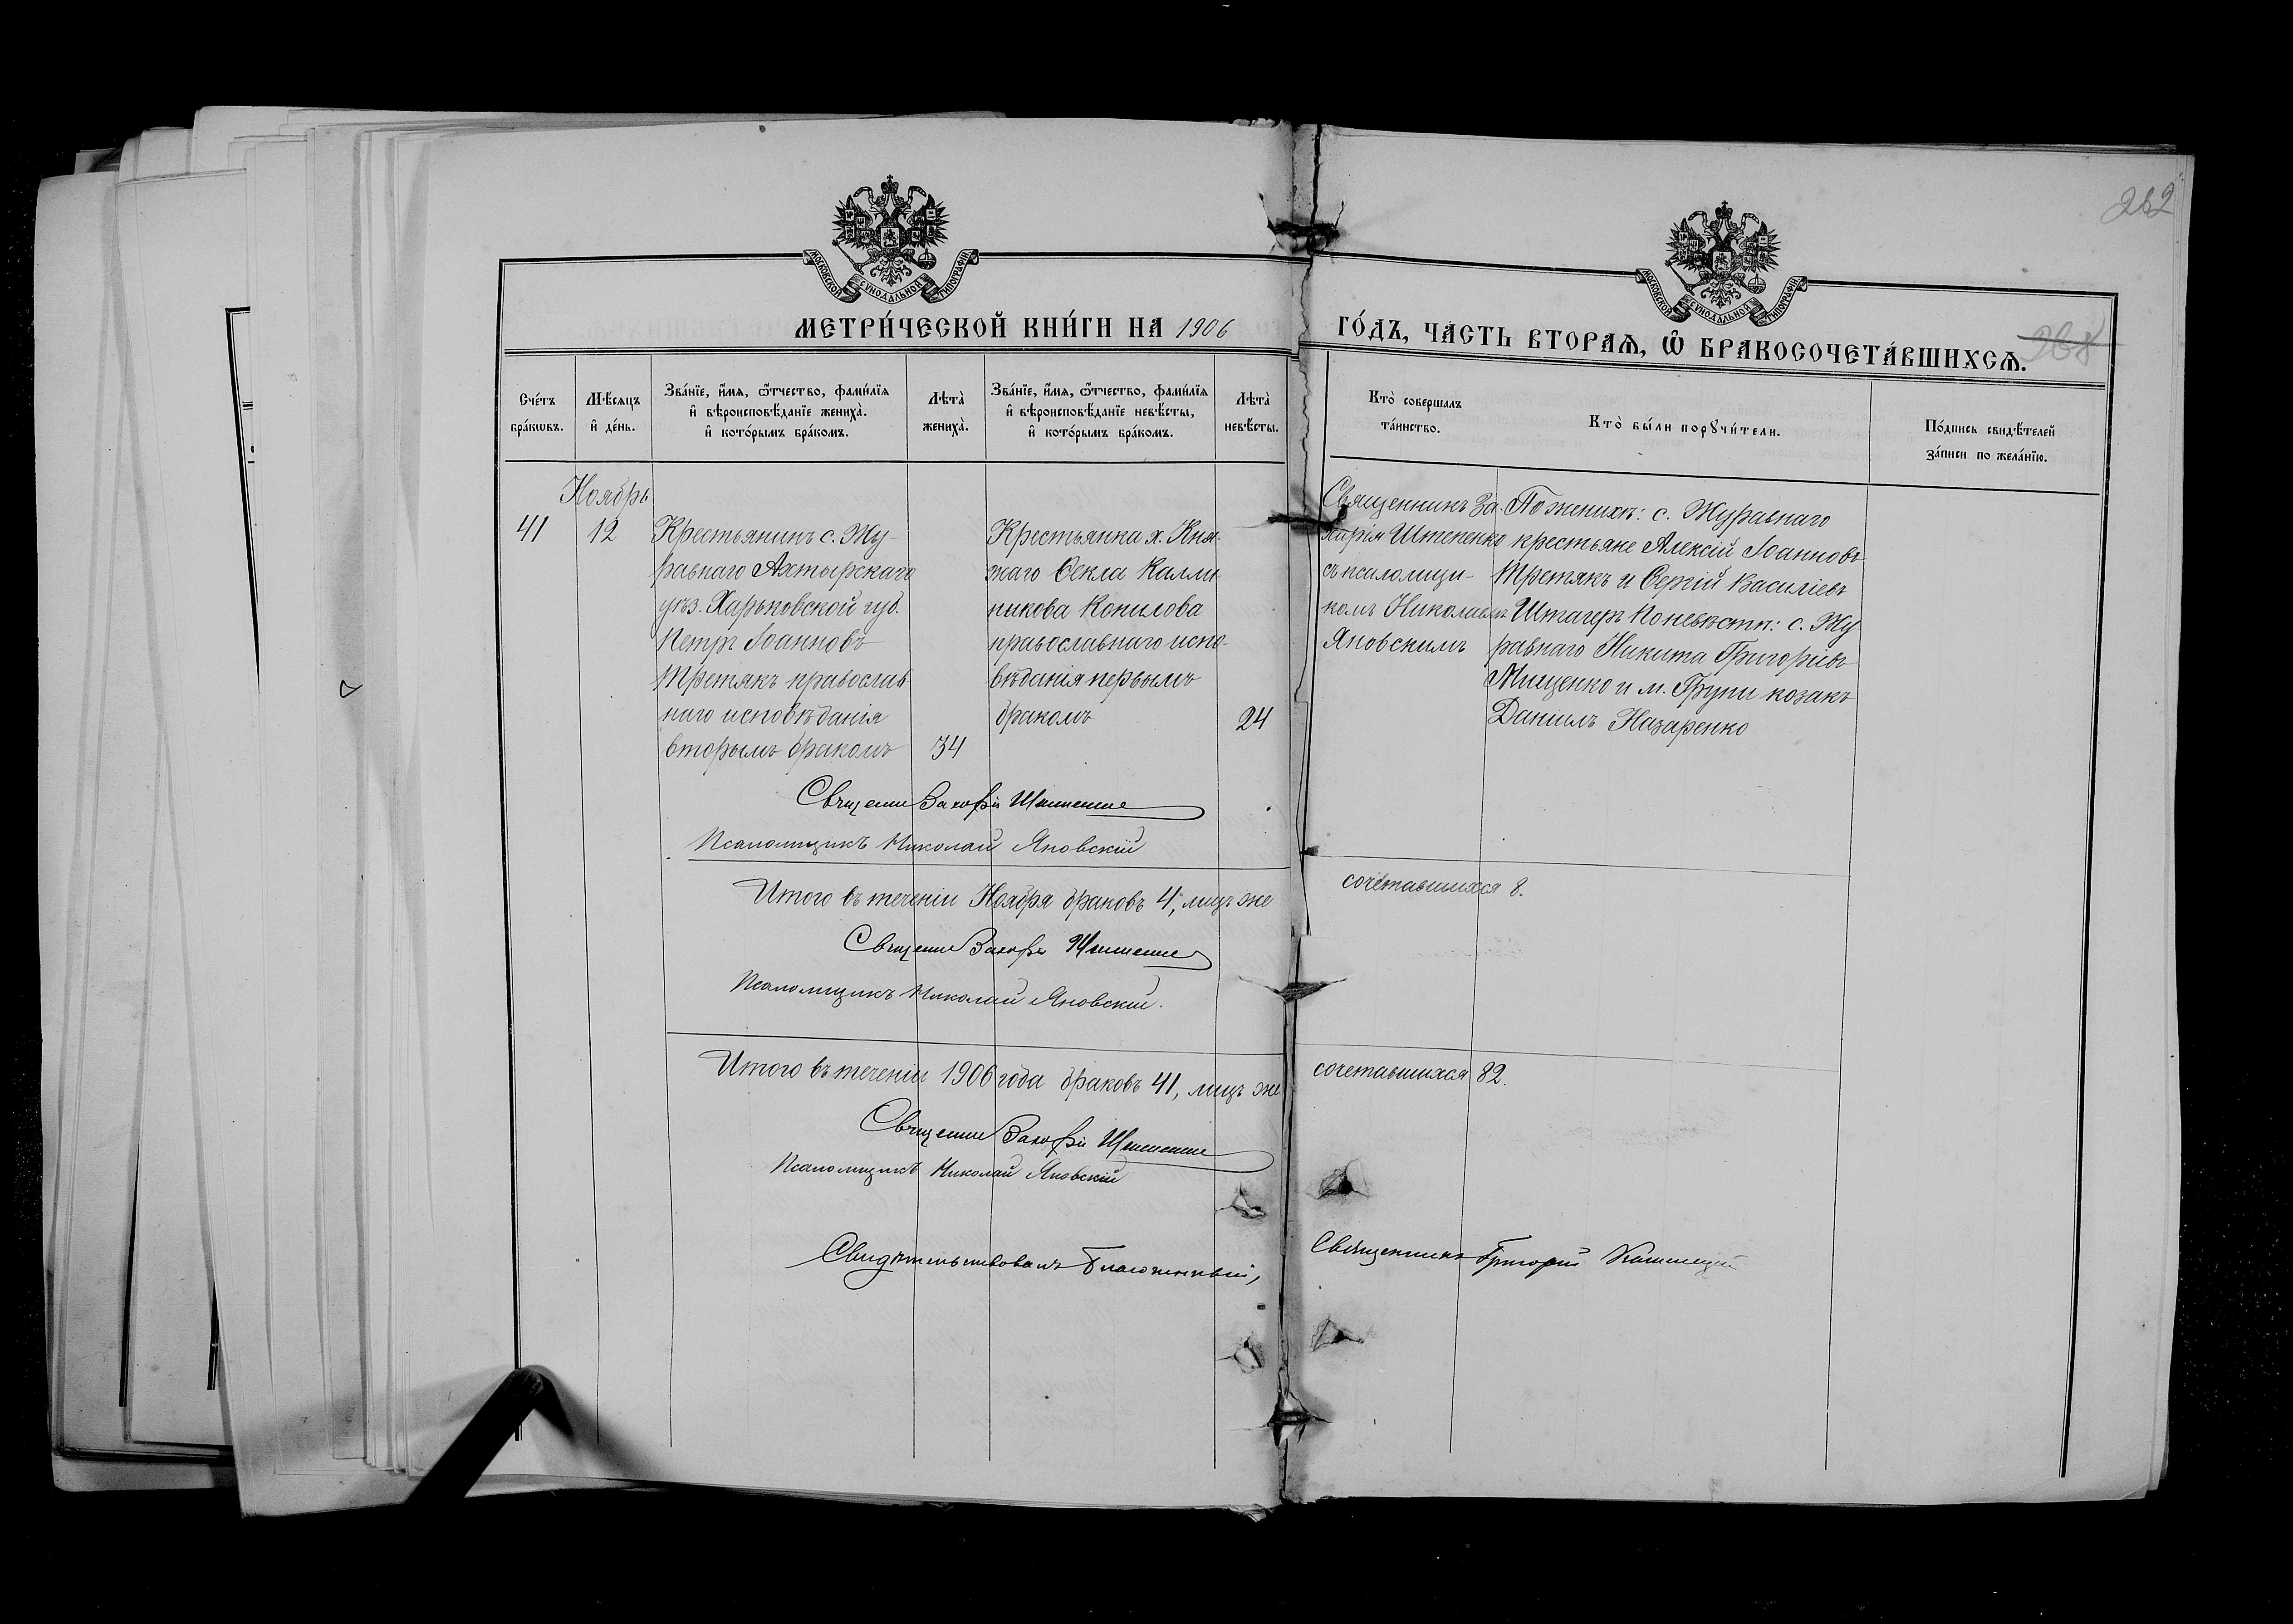 282
МОСКОВСКОЙ СѴНОДАЛЬНОЙ ТИПОГРАФІИ
МОСКОВСКОЙ СѴНОДАЛЬНОЙ ТИПОГРАФІИ
МЕТРИ́ЧЕСКОЙ КНИ́ГИ НА 1906
ГО́ДЪ, ЧА́СТЬ ВТОРАѦ, Ѿ БРАКОСОЧЕТА́ВШИХСѦ.
268
Сче́тъ бра́кѡвъ.
Мѣ́сяцъ и҆ де́нь.
Зва́нїе, и҆́мя, ѻ҆́тчество, фами́лїя и҆ вѣроисповѣ́данїе жениха̀. и҆ кото́рымъ бра́комъ.
Лѣ́та̀ жениха̀.
Зва́нїе, и҆́мя, ѻ҆́тчество, фами́лїя и҆ вѣроисповѣ́данїе невѣ́сты, и҆ кото́рымъ бра́комъ.
Лѣ́та̀ невѣ́сты.
Кто̀ совершалъ та́инство.
Кто̀ бы́ли порꙋчи́тели.
По́дпись свидѣ́телей за́писи по жела́нїю.
Ноябрь
41
12
Крестьянинъ с. Жу-
равнаго Ахтырскаго
уѣз. Харьковской губ.
Петръ Іоанновъ
Третякъ православ
наго исповѣданія
вторымъ бракомъ
34
Крестьянка х. Кня-
жаго Ѳекла Калли
никова Копилова
православнаго испо-
вѣданія первымъ
бракомъ
24
Священникъ За-
харія Штепенко
съ псаломщи-
комъ Николаемъ
Яновскимъ
По женихѣ: с. Журавнаго
крестьяне Алексій Іоанновъ
Третякъ и Сергій Василіевъ
Штагеръ По невѣстѣ: с. Жу
равнаго Никита Григоріевъ
Мищенко и м. Груни козакъ
Даніилъ Назаренко
Священ Захарія Штепенко
Псаломщикъ Николай Яновскій
Итого въ теченіи Ноября браковъ 4, лицъ же
сочетавшихся 8.
Священ Захарія Штепенко
Псаломщикъ Николай Яновскій.
Итого въ теченіи 1906 года браковъ 41, лицъ же
сочетавшихся 82.
Священ Захарія Штепенко
Псаломщикъ Николай Яновскій
Свидѣтельствовалъ Благочинный,
Священникъ Григорій